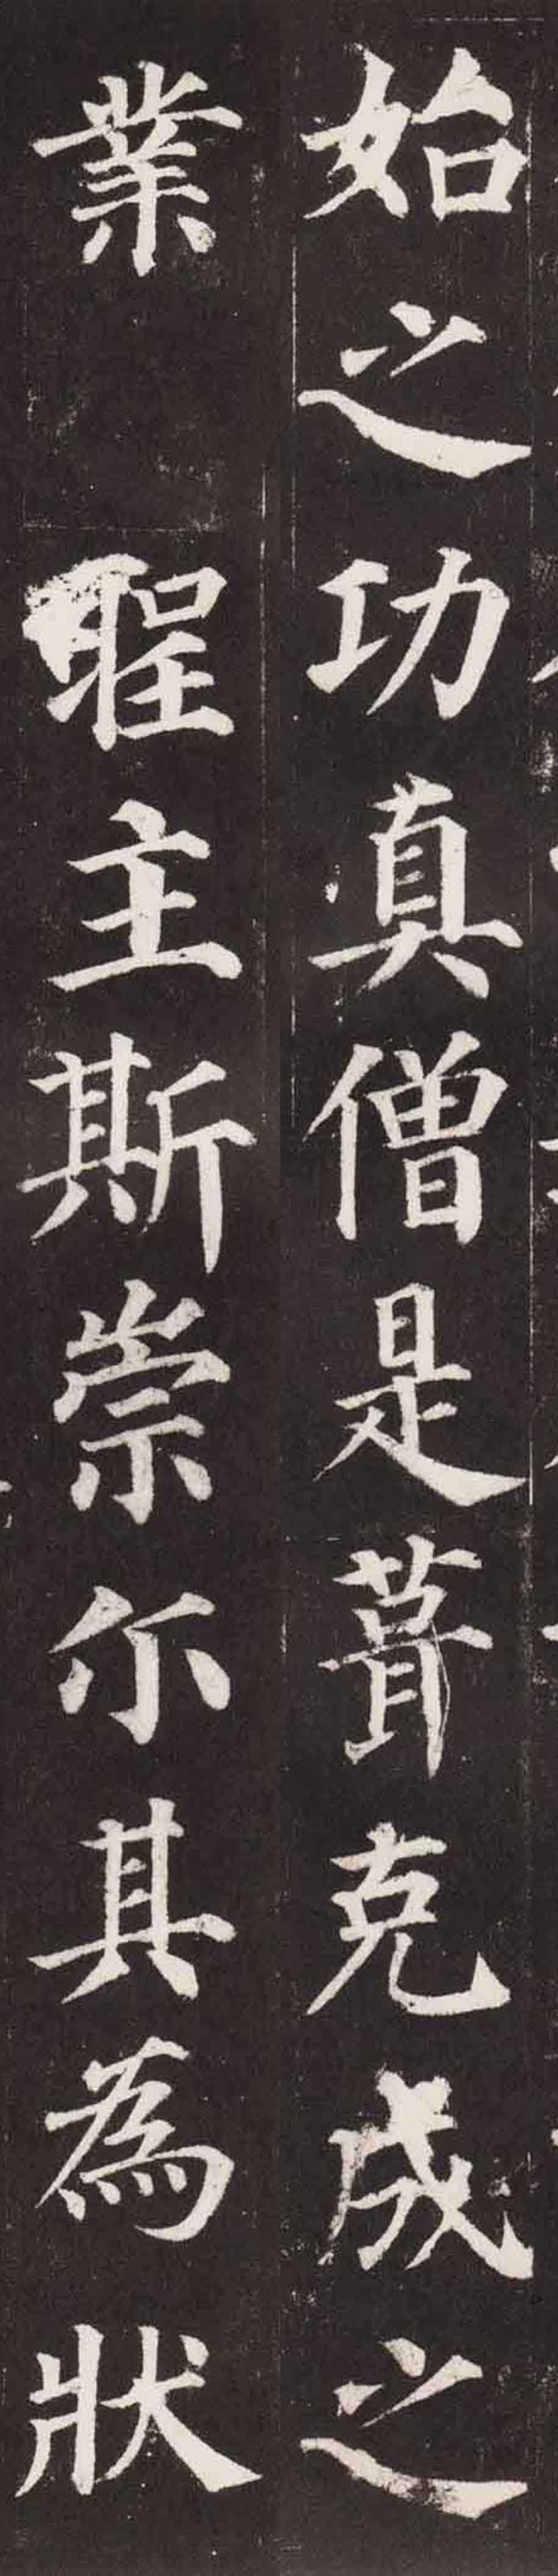 始之功真僧是葺克成之
業　聖主斯崇尒其為狀